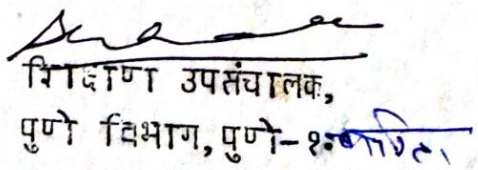 शिक्षण उपसंचालक,
पुणे विभाग, पुणे-१.करिता